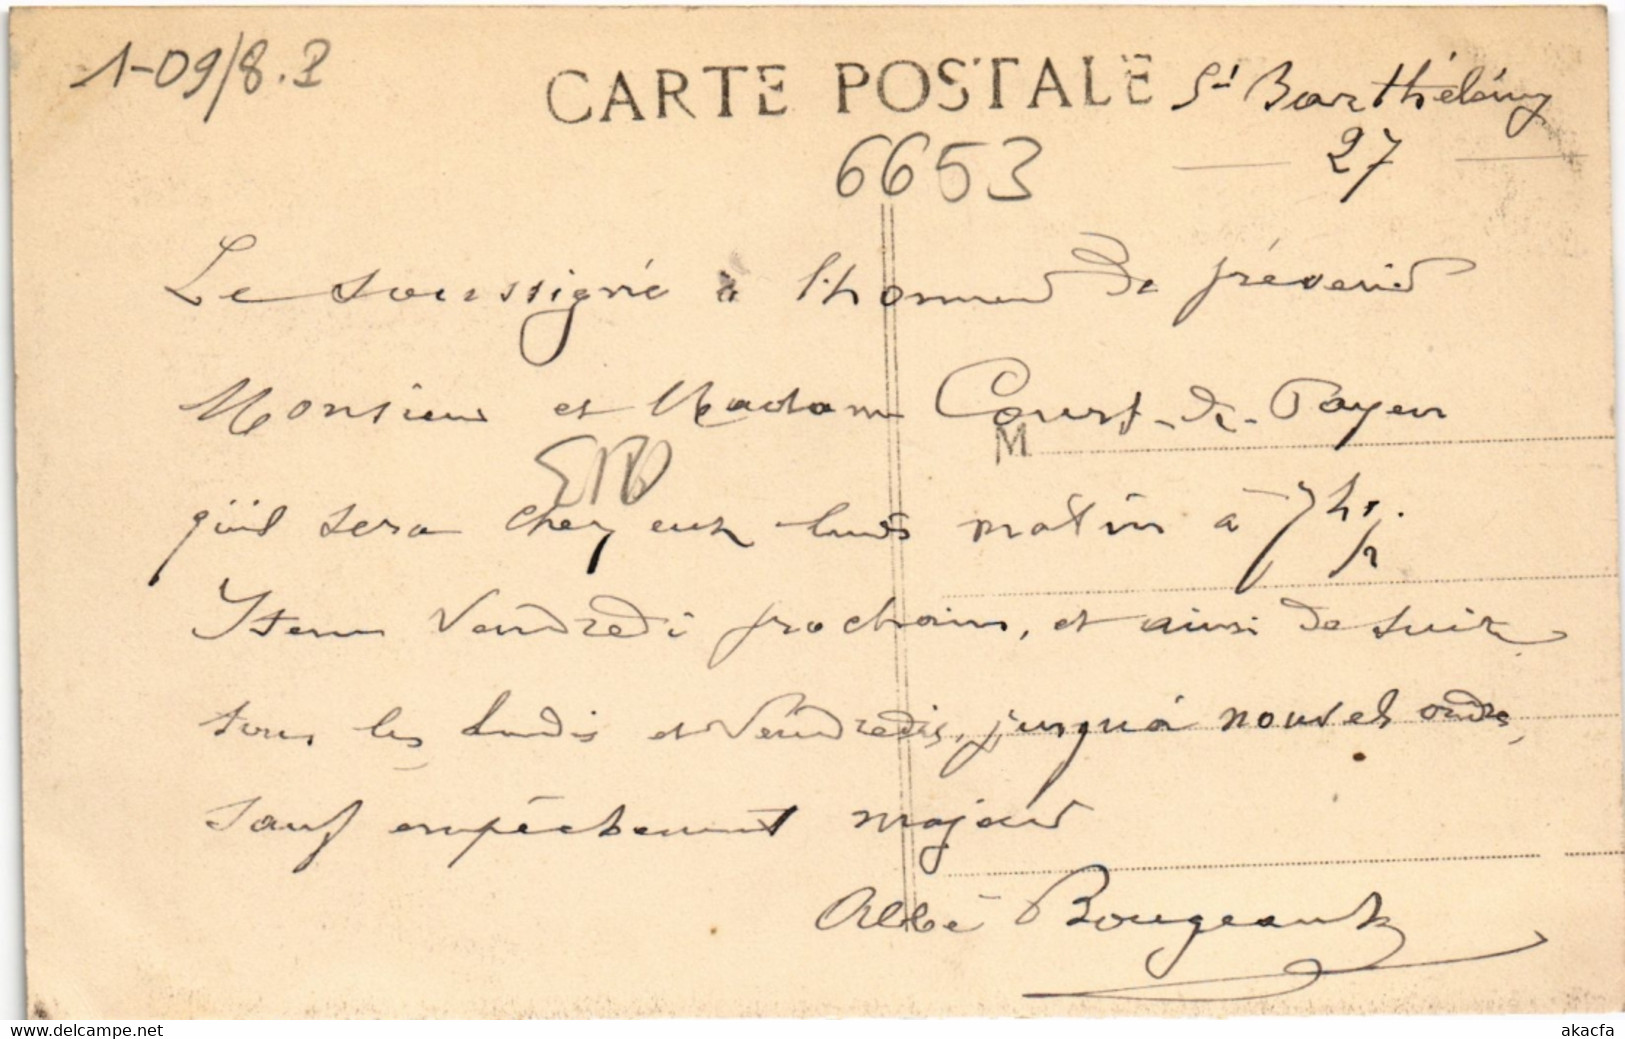 1-09/8.2
CARTE POSTALE St Barthélémy
6653
27
Le soussigné a l'honneur de prévenir
Monsieur et Madame Court-de-Payen
M
EPD
qu'il sera chez eux lundi matin à 7h 1/2.
Item Vendredi prochain, et ainsi de suite
tous les Lundis et Vendredis, jusqu'à nouvel ordre,
sauf empêchement majeur
Abbé Bougeault
delcampe.net
akacfa